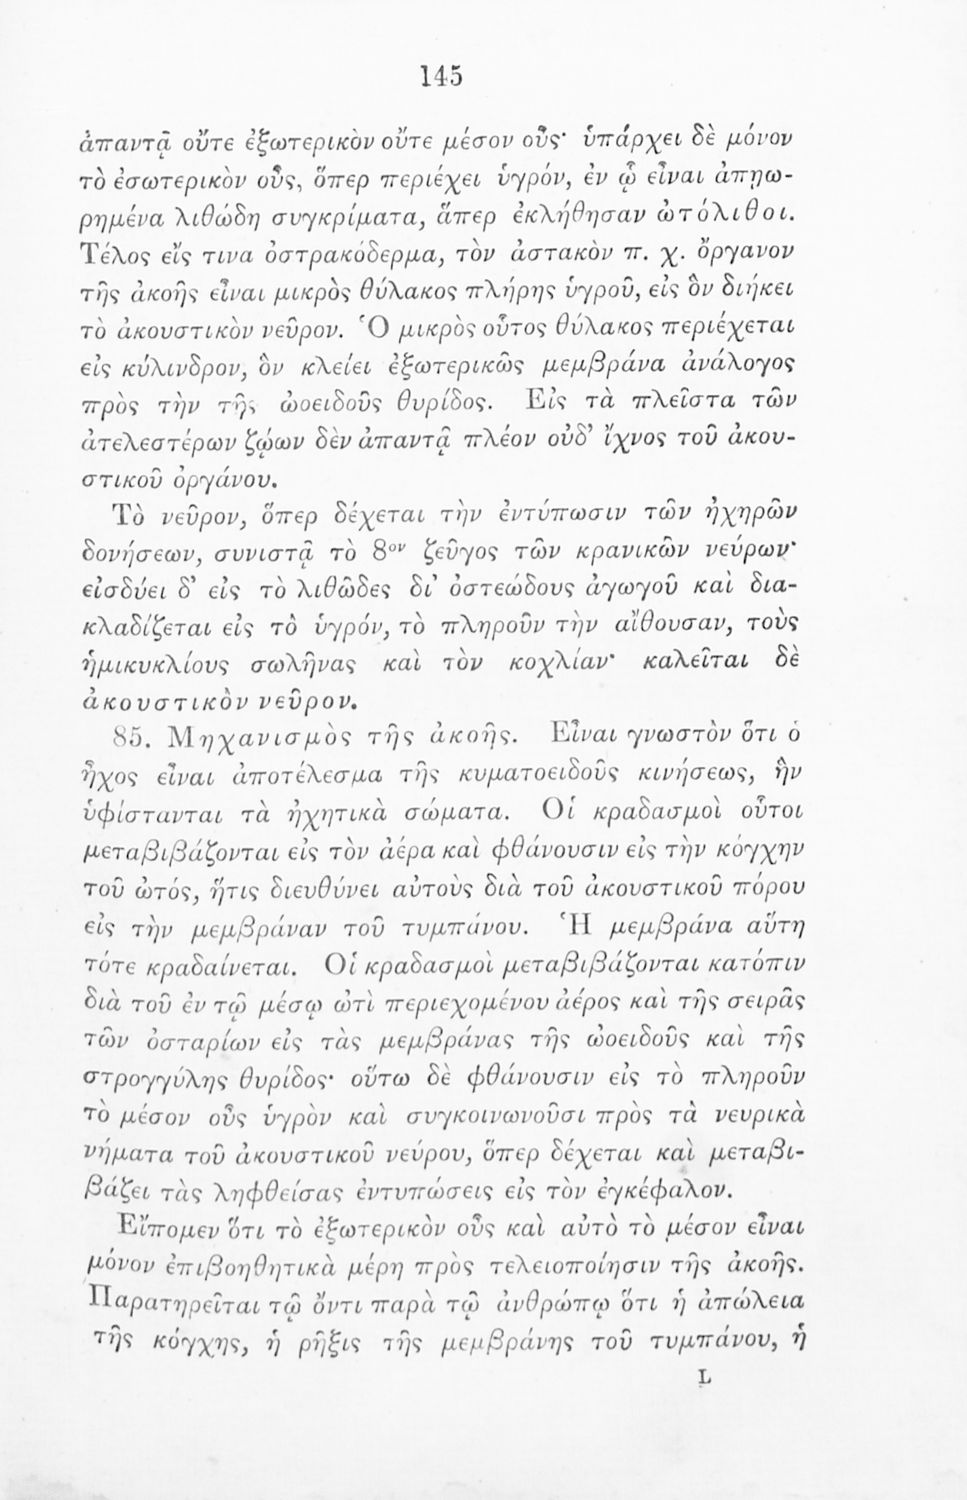 145
ἀπαντᾷ οὔτε ἐξωτερικὸν οὔτε μέσον οὖς· ὑπάρχει δὲ μόνον
τὸ ἐσωτερικὸν οὖς, ὅπερ περιέχει ὑγρόν, ἐν ᾧ εἶναι ἀπῃω-
ρημένα λιθώδη συγκρίματα, ἅπερ ἐκλήθησαν ὠτόλιθοι.
Τέλος εἴς τινα ὀστρακόδερμα, τὸν ἀστακὸν π. χ. ὄργανον
τῆς ἀκοῆς εἶναι μικρὸς θύλακος πλήρης ὑγροῦ, εἰς ὃν διήκει
τὸ ἀκουστικὸν νεῦρον. Ὁ μικρὸς οὗτος θύλακος περιέχεται
εἰς κύλινδρον, ὃν κλείει ἐξωτερικῶς μεμβράνα ἀνάλογος
πρὸς τὴν τῆς ὠοειδοῦς θυρίδος. Εἰς τὰ πλεῖστα τῶν
ἀτελεστέρων ζῴων δὲν ἀπαντᾷ πλέον οὐδ’ ἴχνος τοῦ ἀκου-
στικοῦ ὀργάνου.
Τὸ νεῦρον, ὅπερ δέχεται τὴν ἐντύπωσιν τῶν ἠχηρῶν
δονήσεων, συνιστᾷ τὸ 8ον ζεῦγος τῶν κρανικῶν νεύρων·
εἰσδύει δ’ εἰς τὸ λιθῶδες δι’ ὀστεώδους ἀγωγοῦ καὶ δια-
κλαδίζεται εἰς τὸ ὑγρόν, τὸ πληροῦν τὴν αἴθουσαν, τοὺς
ἡμικυκλίους σωλῆνας καὶ τὸν κοχλίαν· καλεῖται δὲ
ἀκουστικὸν νεῦρον.
85. Μηχανισμὸς τῆς ἀκοῆς. Εἶναι γνωστὸν ὅτι ὁ
ἦχος εἶναι ἀποτέλεσμα τῆς κυματοειδοῦς κινήσεως, ἣν
ὑφίστανται τὰ ἠχητικὰ σώματα. Οἱ κραδασμοὶ οὗτοι
μεταβιβάζονται εἰς τὸν ἀέρα καὶ φθάνουσιν εἰς τὴν κόγχην
τοῦ ὠτός, ἥτις διευθύνει αὐτοὺς διὰ τοῦ ἀκουστικοῦ πόρου
εἰς τὴν μεμβράναν τοῦ τυμπάνου. Ἡ μεμβράνα αὕτη
τότε κραδαίνεται. Οἱ κραδασμοὶ μεταβιβάζονται κατόπιν
διὰ τοῦ ἐν τῷ μέσῳ ὠτὶ περιεχομένου ἀέρος καὶ τῆς σειρᾶς
τῶν ὀσταρίων εἰς τὰς μεμβράνας τῆς ὠοειδοῦς καὶ τῆς
στρογγύλης θυρίδος· οὕτω δὲ φθάνουσιν εἰς τὸ πληροῦν
τὸ μέσον οὖς ὑγρὸν καὶ συγκοινωνοῦσι πρὸς τὰ νευρικὰ
νήματα τοῦ ἀκουστικοῦ νεύρου, ὅπερ δέχεται καὶ μεταβι-
βάζει τὰς ληφθείσας ἐντυπώσεις εἰς τὸν ἐγκέφαλον.
Εἴπομεν ὅτι τὸ ἐξωτερικὸν οὖς καὶ αὐτὸ τὸ μέσον εἶναι
μόνον ἐπιβοηθητικὰ μέρη πρὸς τελειοποίησιν τῆς ἀκοῆς.
Παρατηρεῖται τῷ ὄντι παρὰ τῷ ἀνθρώπῳ ὅτι ἡ ἀπώλεια
τῆς κόγχης, ἡ ρῆξις τῆς μεμβράνης τοῦ τυμπάνου, ἡ
L